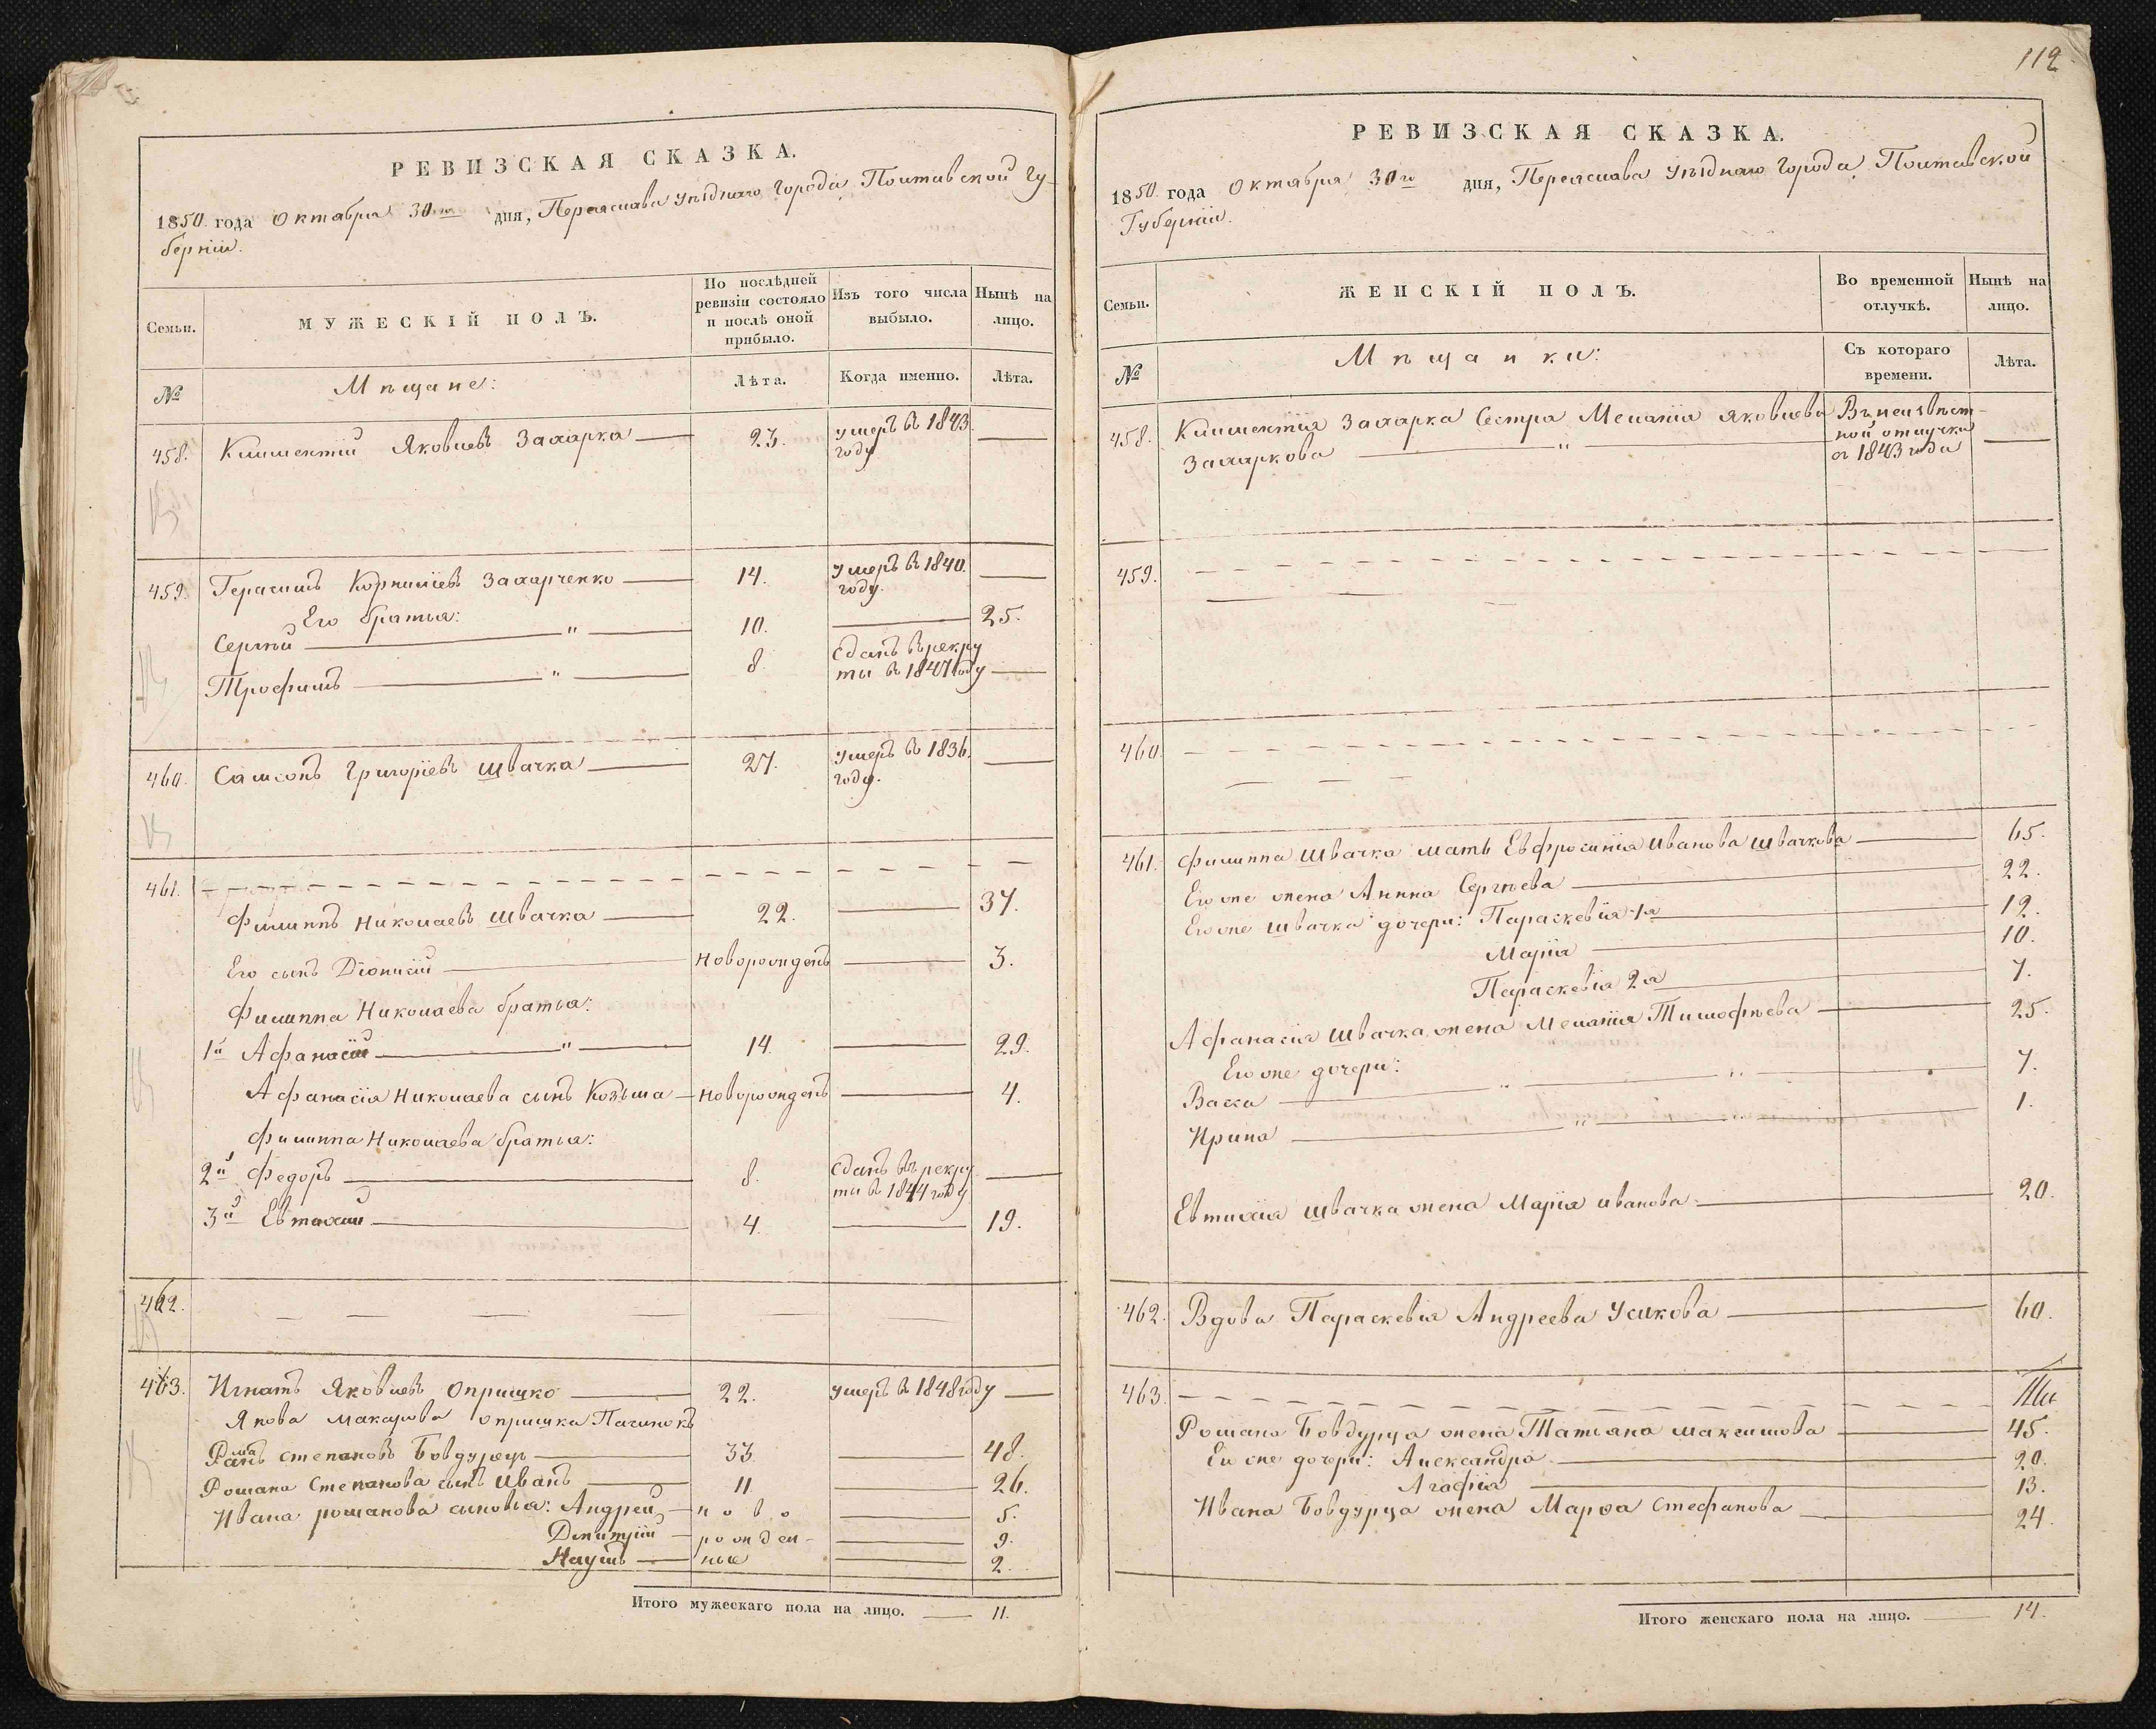 РЕВИЗСКАЯ СКАЗКА.
1850 года Октября 30го дня, Переяслава Уѣзднаго Города Полтавской Гу-
берніи.
Семьи.
МУЖЕСКІЙ ПОЛЪ.
По послѣдней ревизіи состояло и послѣ оной прибыло.
Изъ того числа выбыло.
Нынѣ на лицо.
№
Мѣщане:
Лѣта.
Когда именно.
Лѣта.
458. Климентій Яковлевъ Захарка 23. умеръ въ 1843.
году
459. Герасимъ Корниліевъ Захарченко 14. Умеръ въ 1840.
году.
Его братья:
Сергѣй " 10. 25.
Трофимъ " 8. Сданъ въ рекру
ты въ 1847 году
460. Самсонъ Григоріевъ Швачка 27. Умеръ въ 1836.
году.
461.
Филиппъ Николаевъ Швачка 22. 37.
Его сынъ Діонисій Новорожденъ 3.
Филиппа Николаева братья:
1й Афанасій " 14. 29.
Афанасія Николаева сынъ Козьма Новорожденъ 4.
Филиппа Николаева братья:
2й Федоръ 8. Сданъ въ рекру
ты въ 1844 году
3й Евтихій 4. 19.
462.
463. Игнатъ Яковлевъ Опришко 22. умеръ въ 1848 году
Якова Макарова Опришка Пасынокъ
Романъ Степановъ Бовдурецъ 33. 48.
Романа Степанова сынъ Иванъ 11. 26.
Ивана Романова сыновья: Андрей ново 5.
Димитрій рожден- 9.
Наумъ ные 2.
Итого мужескаго пола на лицо. 11.
112
РЕВИЗСКАЯ СКАЗКА.
1850 года Октября 30го дня, Переяслава Уѣзднаго Города Полтавской
Губерніи.
Семьи.
ЖЕНСКІЙ ПОЛЪ.
Во временной отлучкѣ.
Нынѣ на лицо.
№
Мѣщанки:
Съ котораго времени.
Лѣта.
458. Климентія Захарка Сестра Меланія Яковлева Въ неизвѣст-
Захаркова " ной отлучки
съ 1843 года
459.
460.
461. Филиппа Швачка мать Евфросинія Иванова Швачкова 65.
Его же жена Анна Сергѣева 22.
Его же Швачка дочери: Параскевія 1я 12.
Марія 10.
Параскевія 2я 7.
Афанасія Швачка жена Меланія Тимофѣева 25.
Его же дочери:
Васса " " 7.
Ирина " " 1.
Евтихія Швачка жена Марія Иванова 20.
462. Вдова Параскевія Андреева Усикова 60.
463.
Романа Бовдурца жена Татіана Максимова 45.
Ея же дочери: Александра 20.
Агафія 13.
Ивана Бовдурца жена Марфа Стефанова 24.
Итого женскаго пола на лицо. 14.